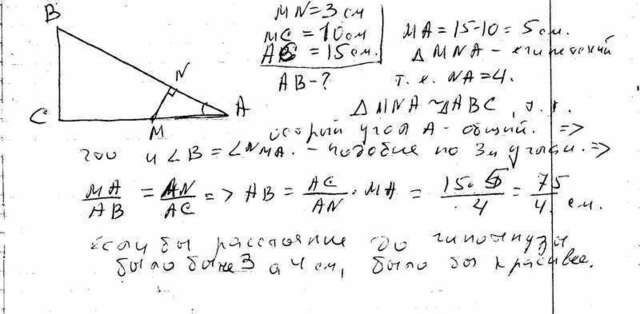 B
N
C
M
A
MN = 3 см
MC = 10 см
AC = 15 см.
AB - ?
MA = 15 - 10 = 5 см.
△ MNA - египетский
т. к. NA = 4.
△ MNA ~ △ ABC, т. к.
острый угол A - общий. =>
то и ∠B = ∠NMA. - подобие по 3м углам. =>
MA/AB = AN/AC => AB = AC/AN · MA = 15·5/4 = 75/4 см.
если бы расстояние до гипотенузы
было бы не 3 а 4 см, было бы красивее.